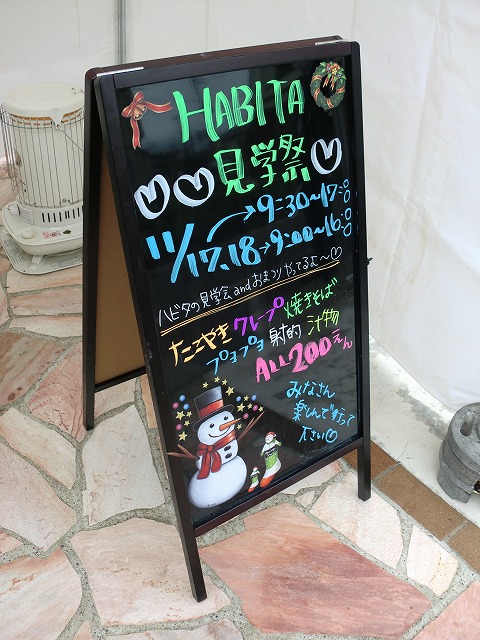 HABITA
見学祭
11/17.18→9:30~17:00
→9:00~16:00
ハビタの見学会andおまつりやってるよ~
たこやき クレープ 焼きそば
プヨプヨ 射的 汁物
ALL200えん
みなさん
楽しんで行って
下さい